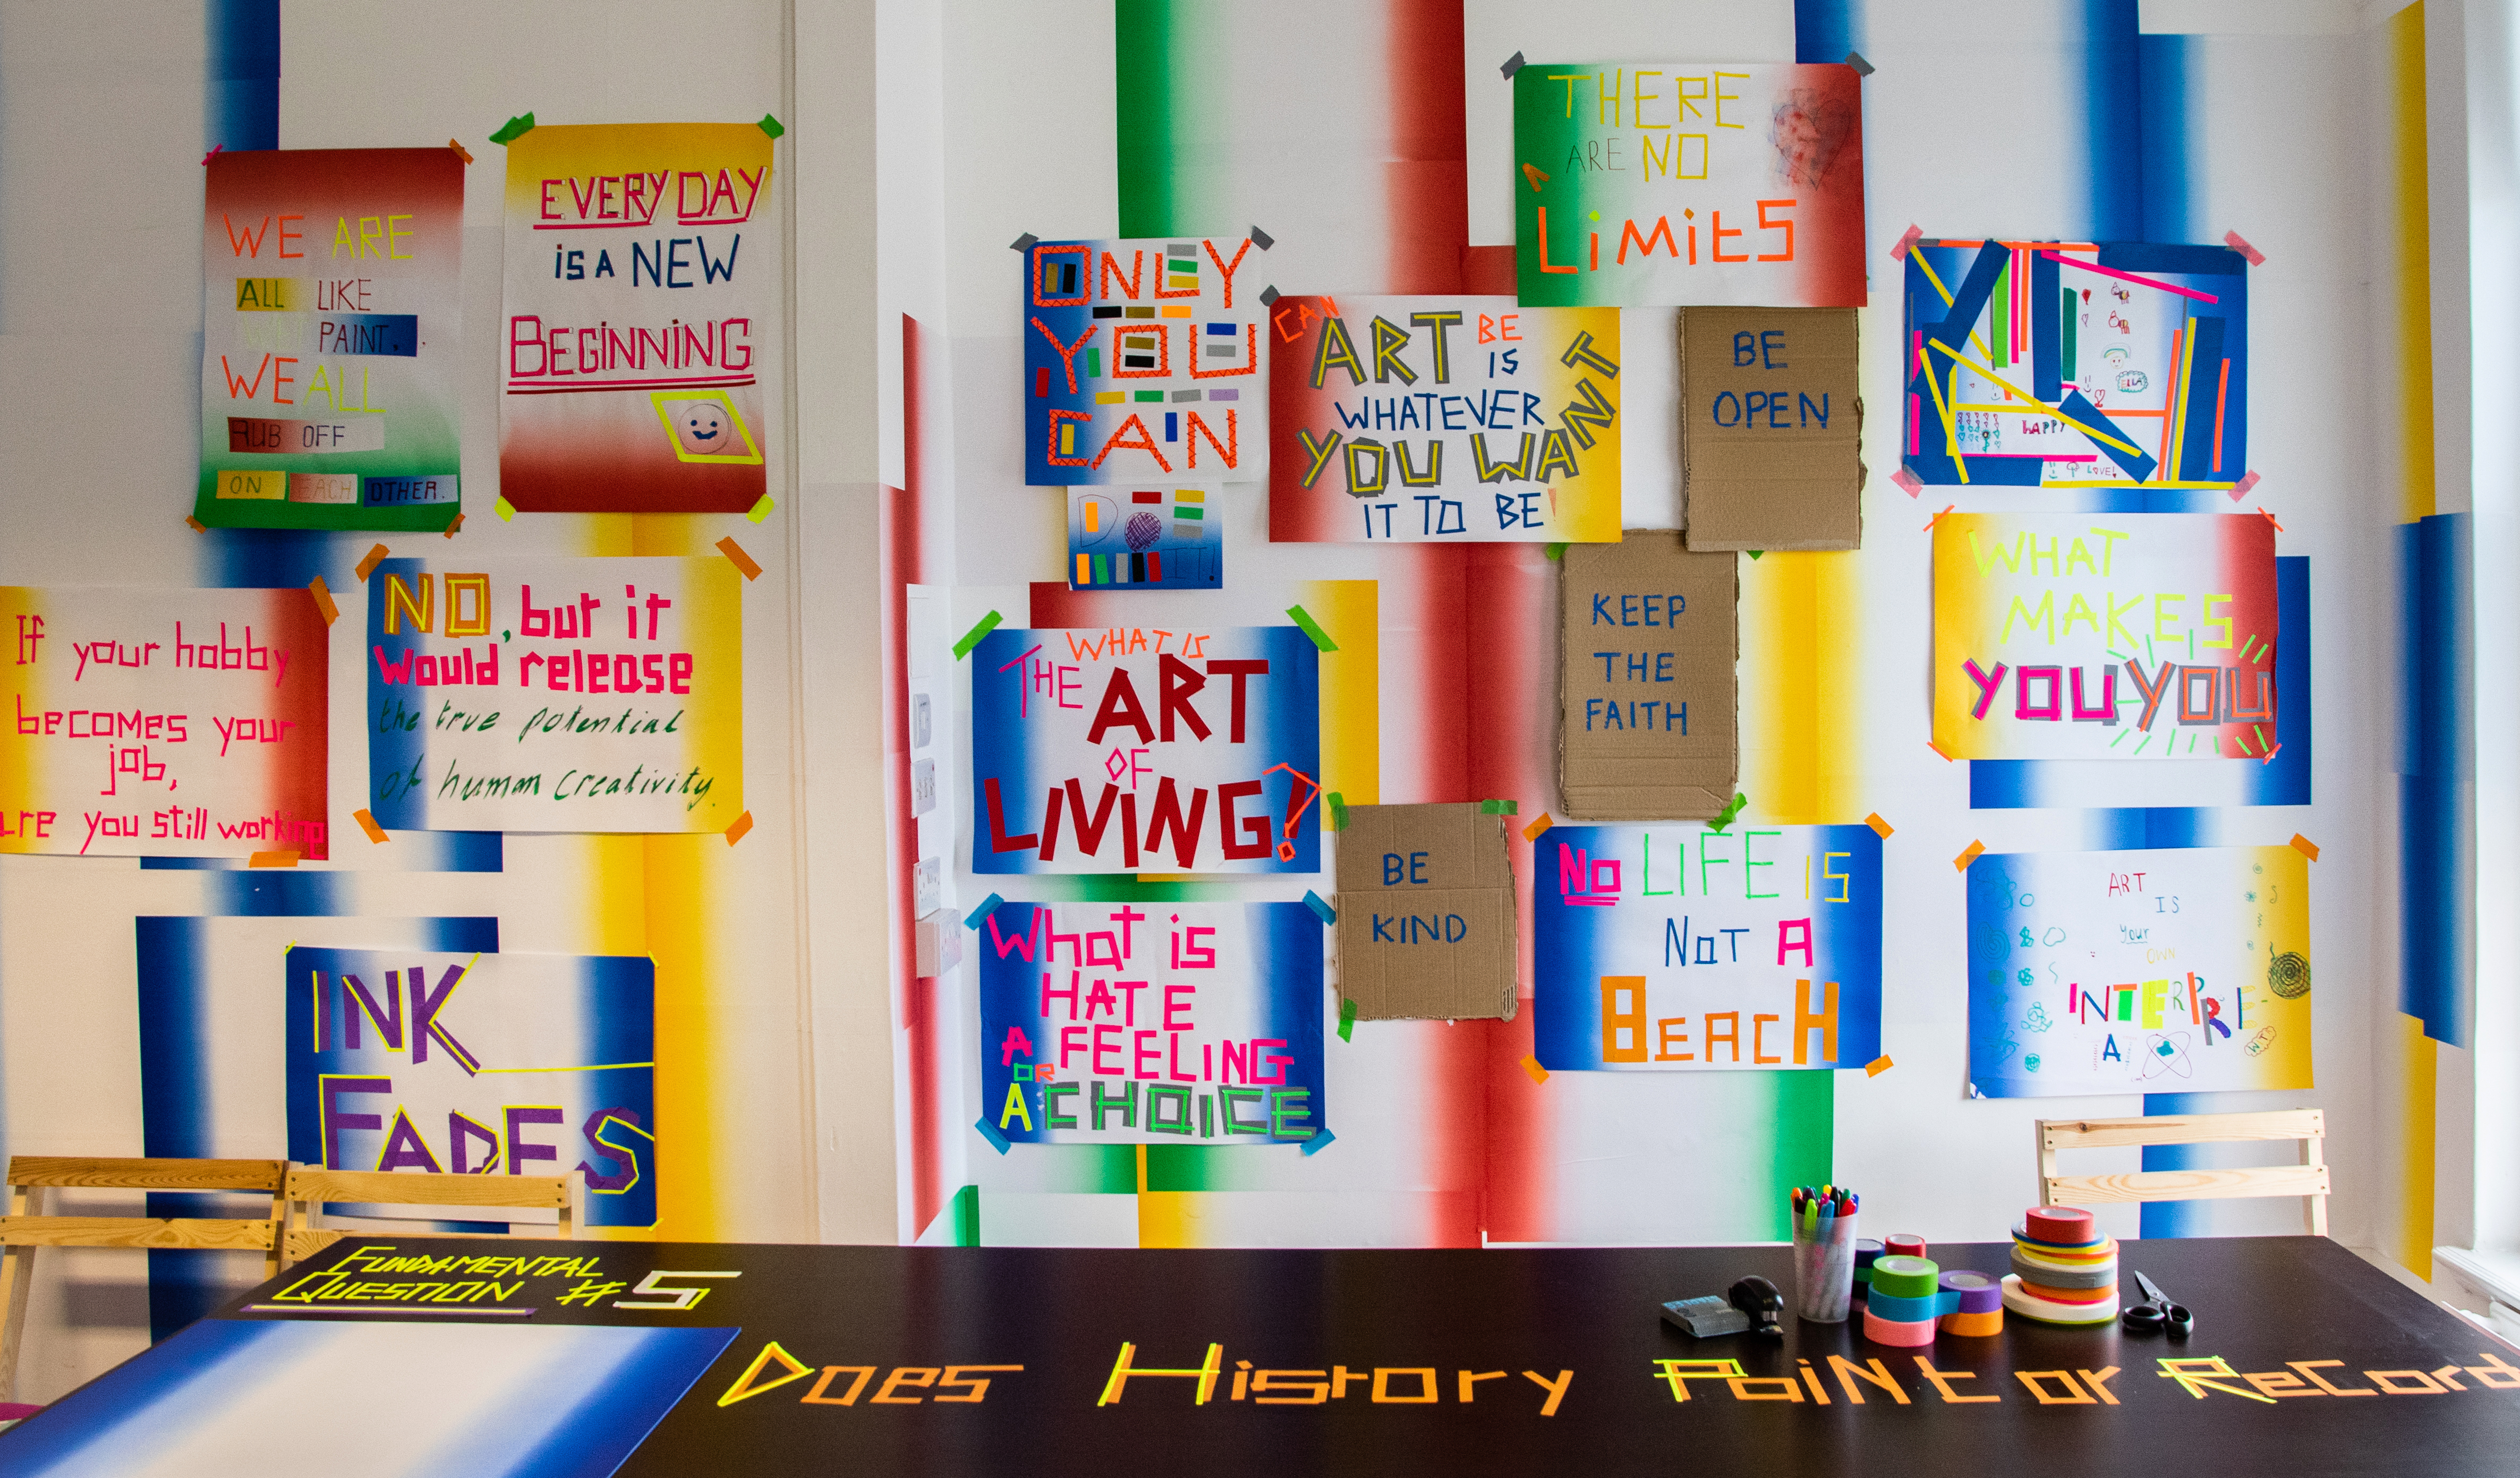 WE ARE
ALL LIKE
PAINT.
WE ALL
RUB OFF
ON EACH OTHER.
EVERY DAY
is A NEW
BEGiNNiNG
If your hobby
becomes your
job,
are you still working
NO, but it
would release
the true potential
of human creativity.
INK
FADES
ONLY
YOU
CAN
DO
IT!
CAN ART BE
IS
WHATEVER
YOU WANT
IT TO BE
THERE
ARE NO
LiMitS
BE
OPEN
KEEP
THE
FAITH
BE
KIND
WHAT IS
THE ART
OF
LIVING?
What is
HATE
A FEELING
OR
A CHOICE
No LIFE IS
NoT A
BEACH
ELLA
HAPPY
LOVE!
WHAT
MAKES
YOU YOU
ART
IS
your
OWN
INTERPRE-
A
FUNDAMENTAL
QUESTION #5
Does History PaiNt or ReCord